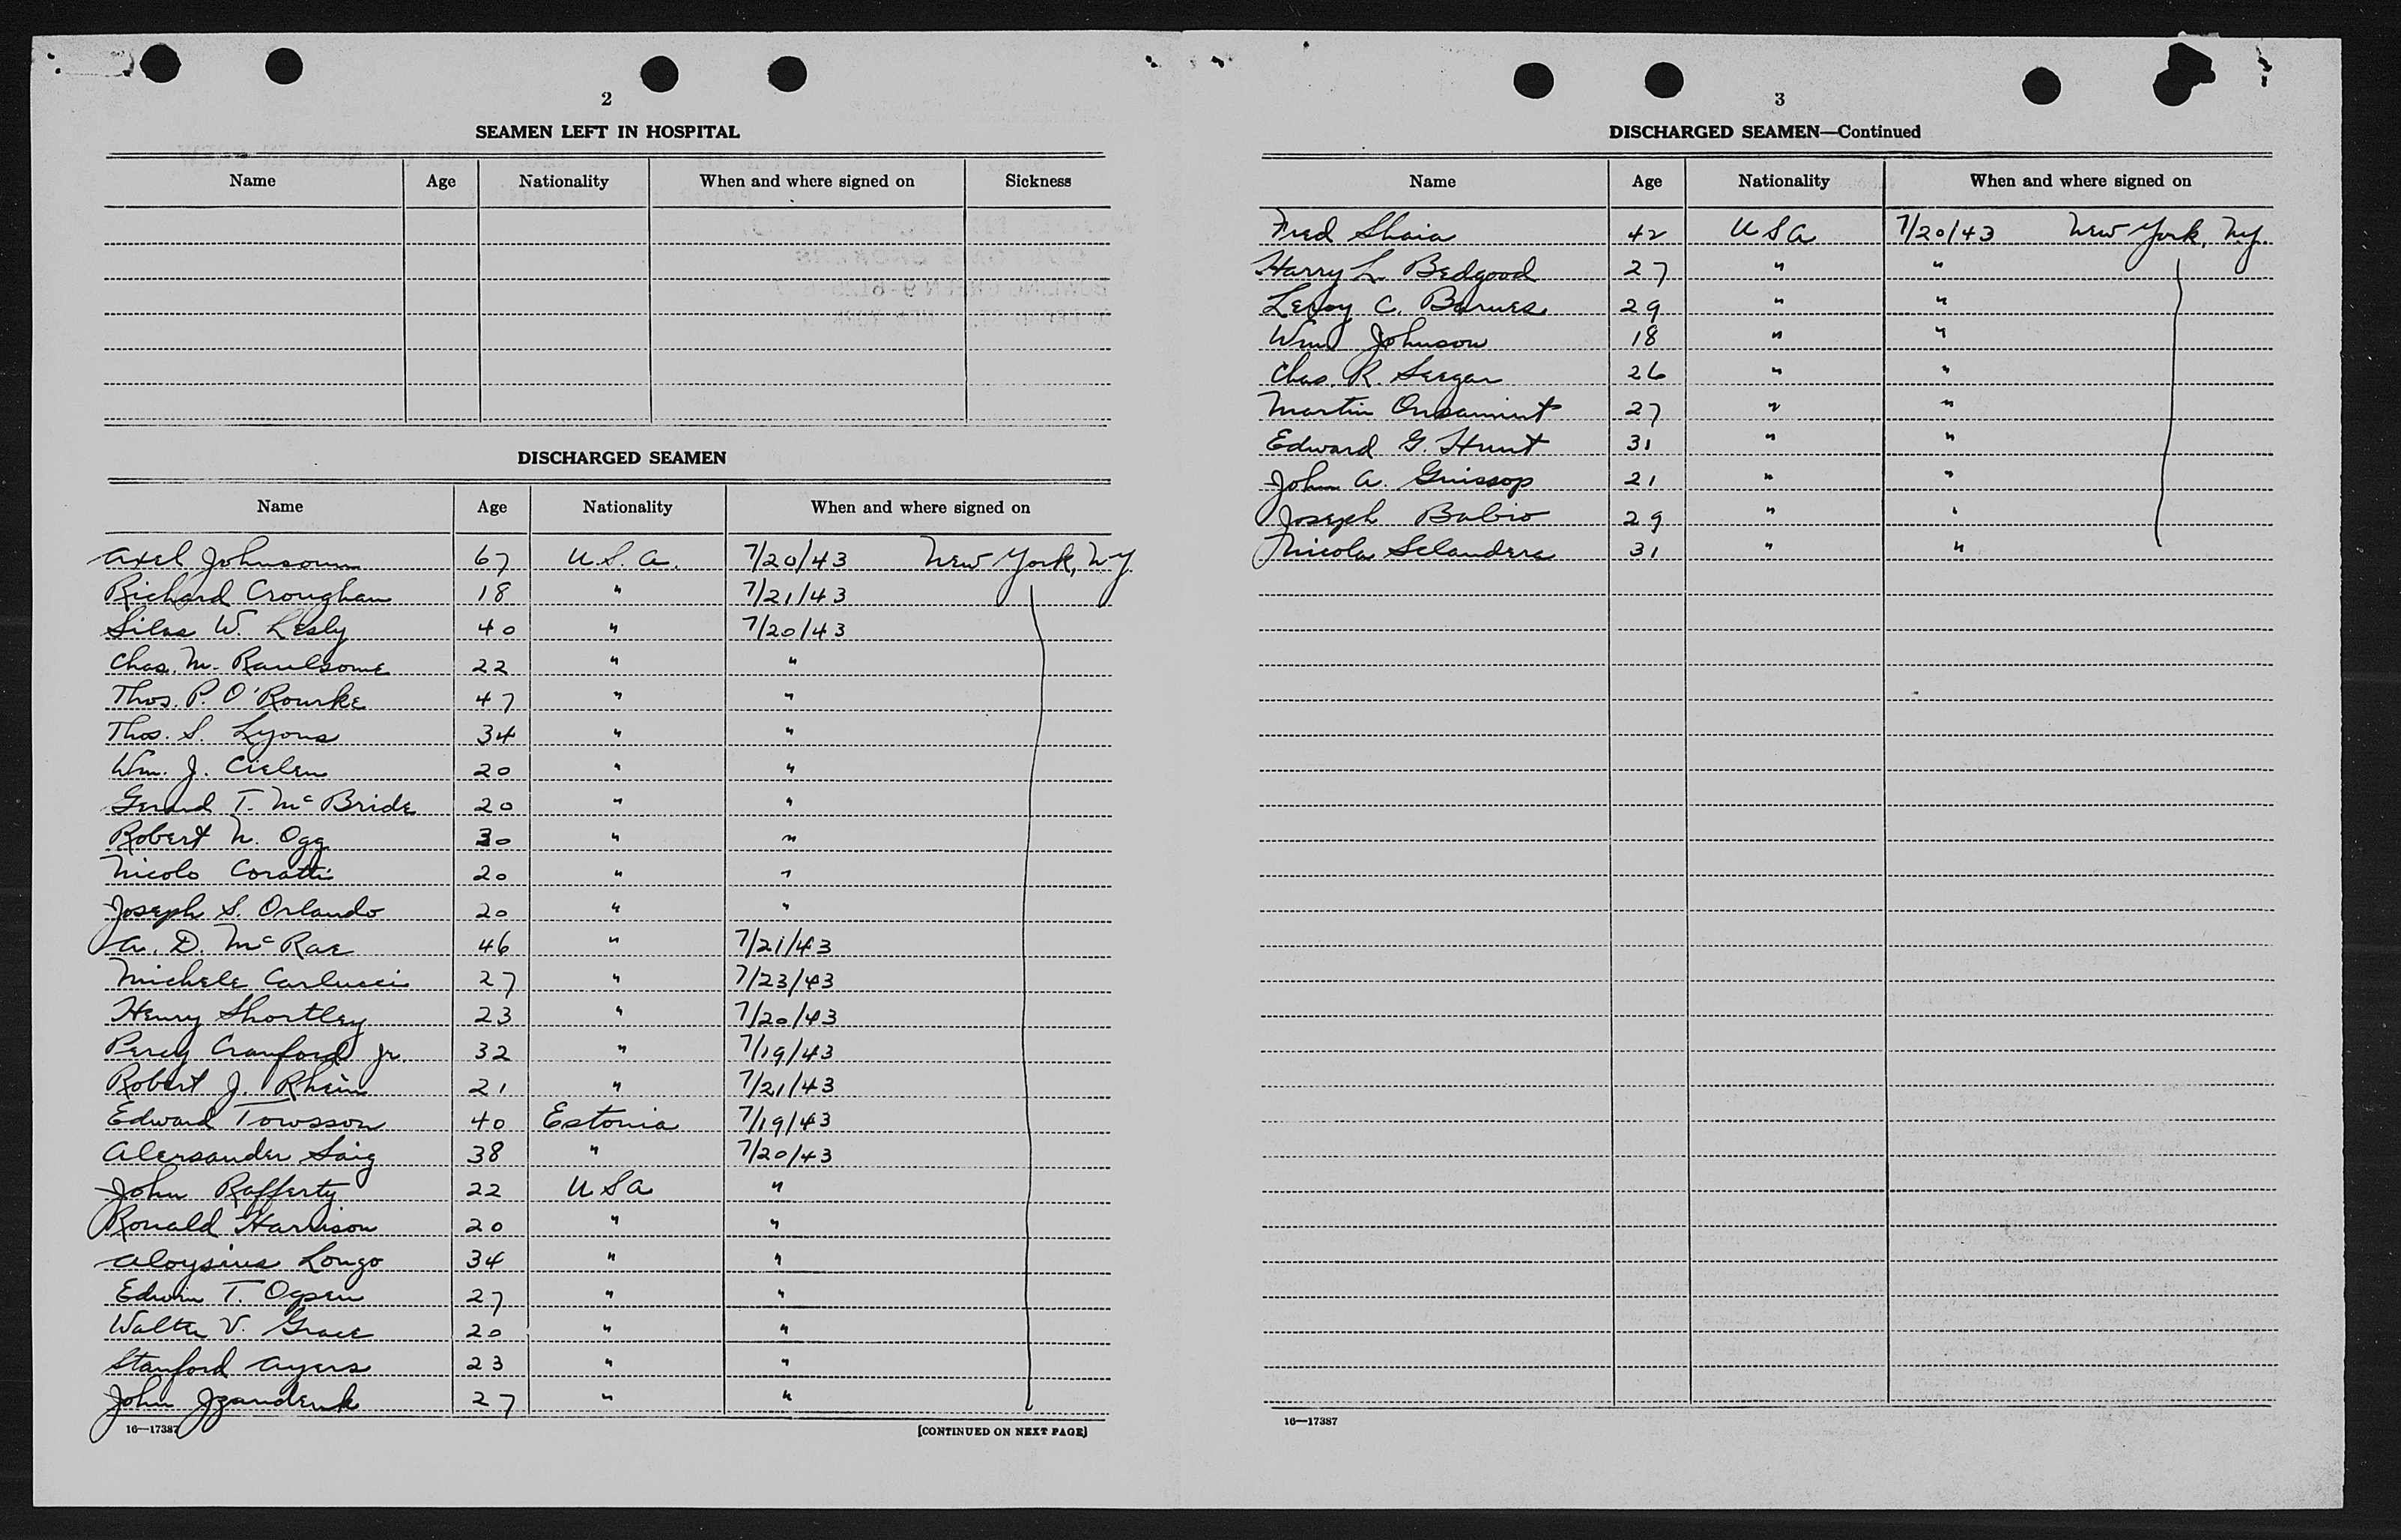 2
SEAMEN LEFT IN HOSPITAL
Name Age Nationality When and where signed on Sickness
DISCHARGED SEAMEN
Name Age Nationality When and where signed on
Axel Johnsonn 67 U.S.A. 7/20/43 New York, N.Y.
Richard Croughan 18 " 7/21/43
Silas W. Lesly 40 " 7/20/43
Chas. M. Raulsome 22 " "
Thos. P. O'Rourke 47 " "
Thos. S. Lyons 34 " "
Wm. J. Cielen 20 " "
Gerard T. McBride 20 " "
Robert N. Ogg 30 " "
Nicolo Coratti 20 " "
Joseph S. Orlando 20 " "
A. D. McRae 46 " 7/21/43
Michele Carlucci 27 " 7/23/43
Henry Shortley 23 " 7/20/43
Percy Cranford Jr. 32 " 7/19/43
Robert J. Rhein 21 " 7/21/43
Edward Towsson 40 Estonia 7/19/43
Alersander Saig 38 " 7/20/43
John Rafferty 22 USA "
Ronald Harrison 20 " "
Aloysius Longo 34 " "
Edwin T. Ogsen 27 " "
Walter V. Grace 20 " "
Stanford Ayers 23 " "
John 27 " "
16—17387 [CONTINUED ON NEXT PAGE]
3
DISCHARGED SEAMEN—Continued
Name Age Nationality When and where signed on
Fred Shaia 42 USA 7/20/43 New York, N.Y.
Harry L. Bedgood 27 " "
Leroy C. Barnes 29 " "
Wm Johnson 18 " "
Chas. R. Seegar 26 " "
Martin 27 " "
Edward G. Hunt 31 " "
John A. Grissop 21 " "
Joseph Babio 29 " "
Nicola Selandera 31 " "
16—17387